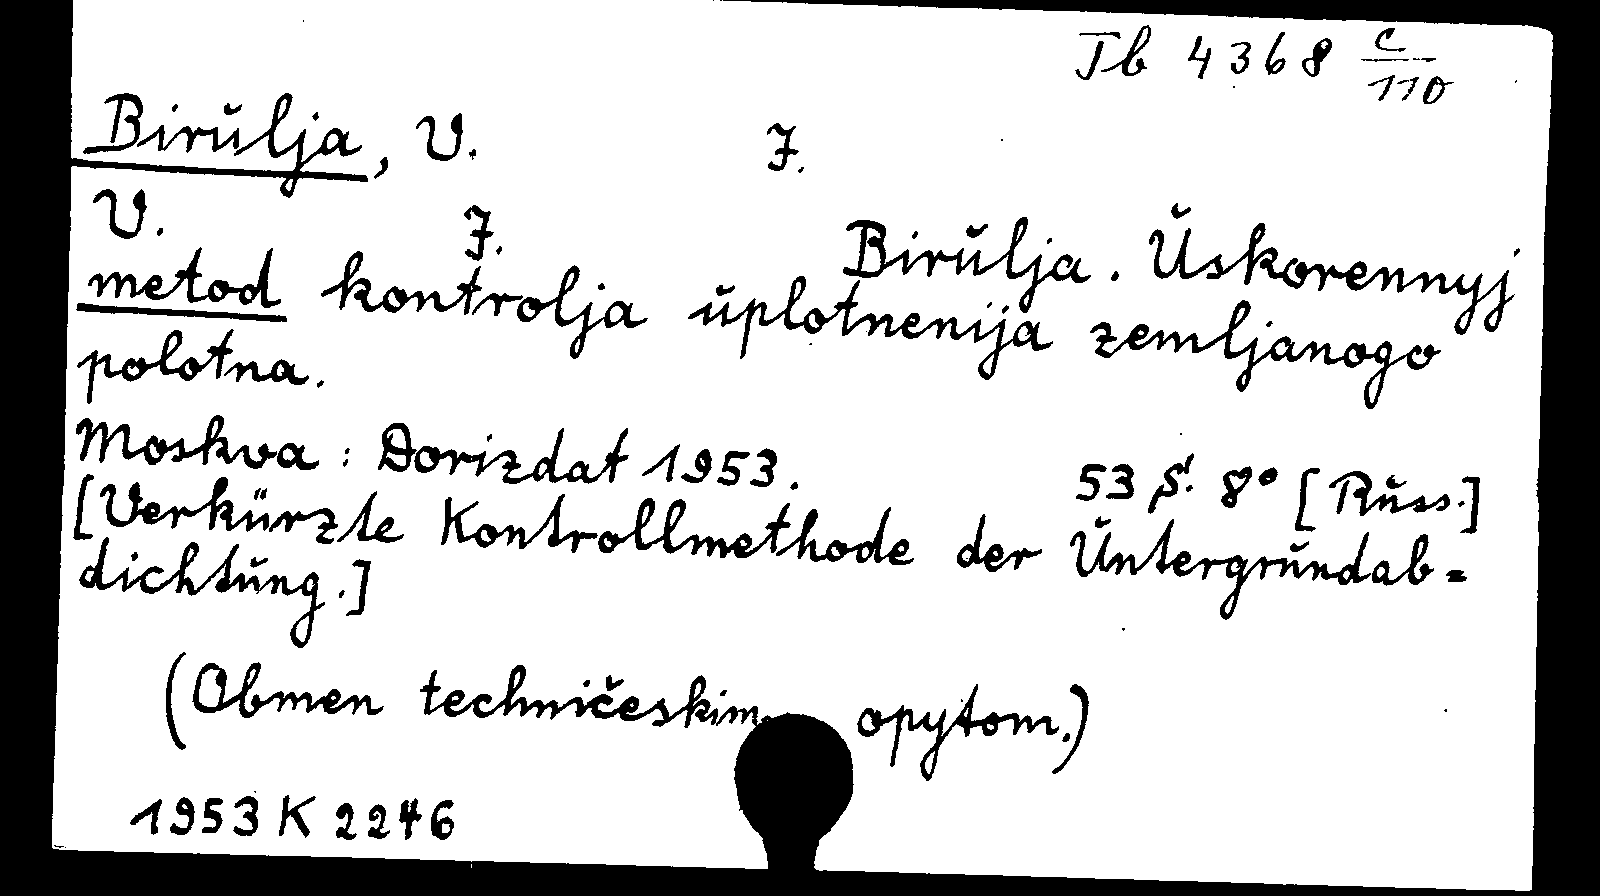 Tb 4368 c/110
Birulja, V. I.
V. I. Birulja. Uskorennyj
metod kontrolja uplotnenija zemljanogo
polotna.
Moskva : Dorizdat 1953. 53 S. 8° [Russ.]
[Verkürzte Kontrollmethode der Untergrundab=
dichtung.]
(Obmen techničeskim opytom.)
1953 K 2246